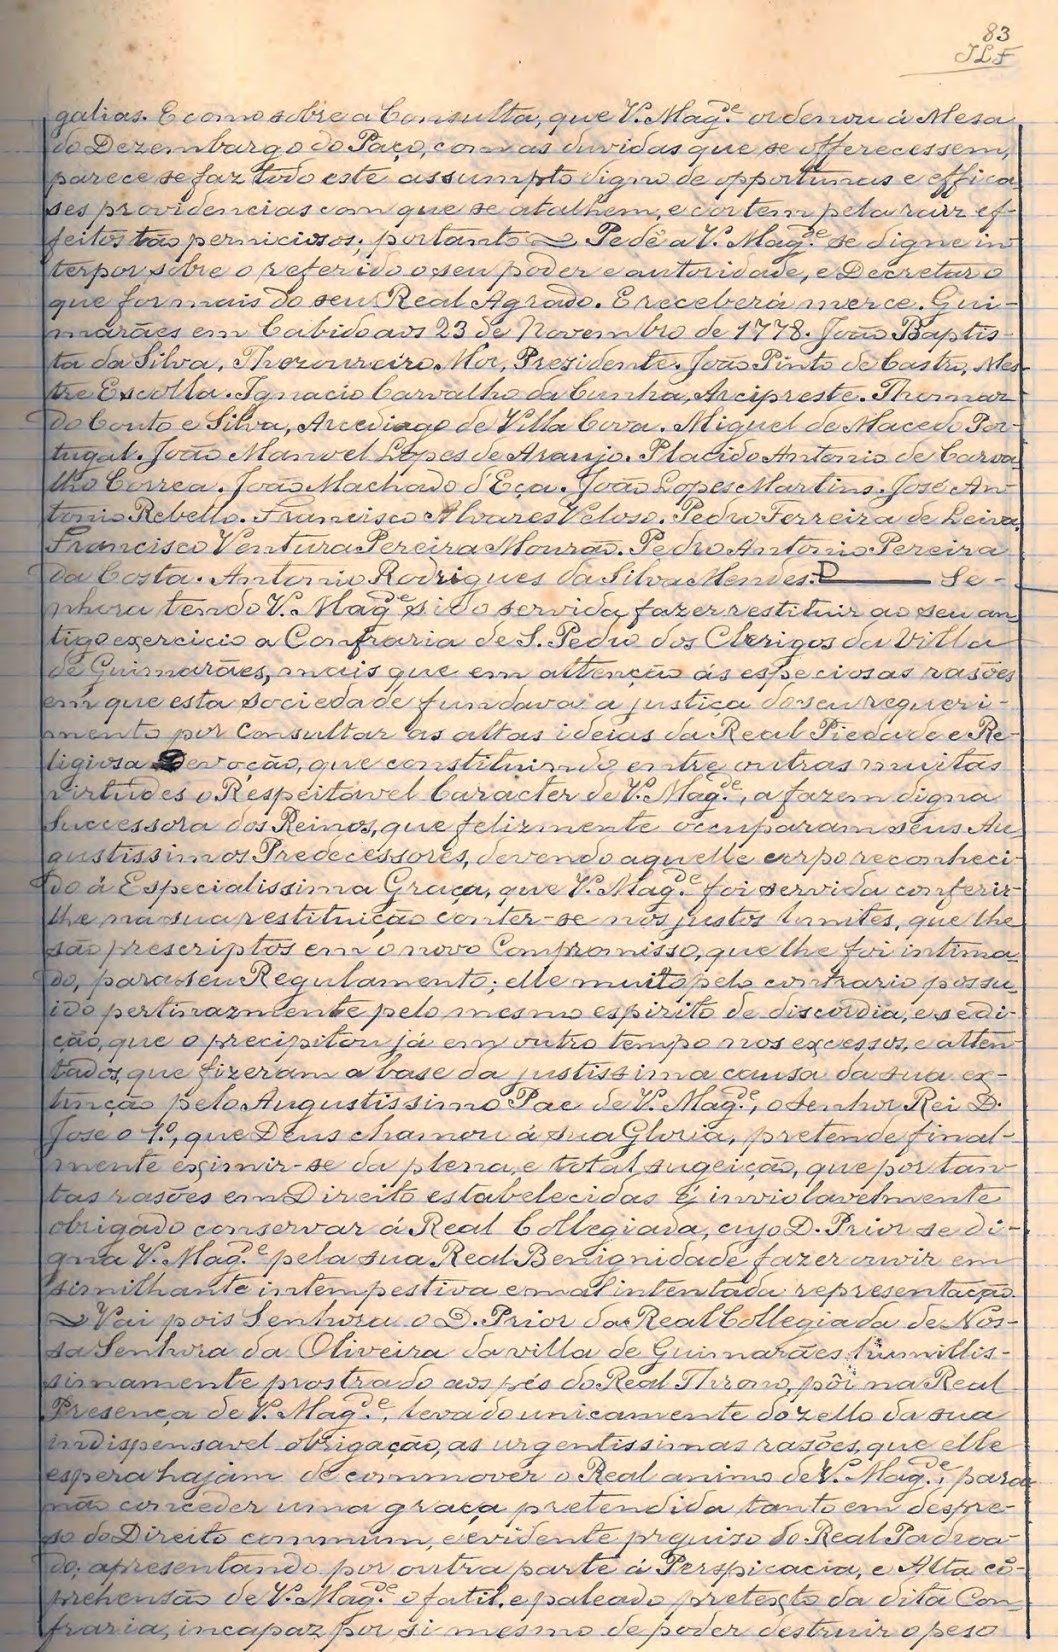 83
JLF
galias. E como sobre a Consulta, que V. Mag.de ordenou á Mesa
do Dezembargo do Paço, com as duvidas que se offerecessem,
parece se faz todo este assumpto digno de opportunas e effica-
ses providencias com que se atalhem, e cortem pela raiz ef-
feitos tão perniciosos; portanto ~ Pede a V. Mag.de se digne in-
terpor sobre o referido o seu poder e autoridade, e Decretar o
que for mais do seu Real Agrado. E receberá merce. Gui-
marães em Cabido aos 23 de Novembro de 1778. João Baptis-
ta da Silva, Thezoureiro Mor, Prezidente. João Pinto de Castro, Mes-
tre Escolla. Ignacio Carvalho da Cunha, Arcipreste. Thomaz
do Couto e Silva, Arcediago de Villa Cova. Miguel de Macedo Por-
tugal. João Manoel Lopes de Araujo. Placido Antonio de Carva-
lho Correa. João Machado d'Eça. João Lopes Martins. José An-
tonio Rebello. Francisco Alvares Veloso. Pedro Ferreira de Leiva.
Francisco Ventura Pereira Mourão. Pedro Antonio Pereira
da Costa. Antonio Rodrigues da Silva Mendes. D Se-
nhora tendo V. Mag.de sido servida fazer restituir ao seu an-
tigo exercicio a Confraria de S. Pedro dos Clerigos da Villa
de Guimarães, mais que em attenção ás especiosas rasões
em que esta sociedade fundava a justiça do seu requeri-
mento por consultar as altas ideias da Real Piedade e Re-
ligiosa Devoção, que constituindo entre outras muitas
virtudes o Respeitavel Caracter de V. Mag.de, a fazem digna
Successora dos Reinos, que felizmente occuparam seus Au-
gustissimos Predecessores, devendo aquelle corpo reconheci-
do á Especialissima Graça, que V. Mag.de foi servida conferir-
lhe na sua restituição conter-se nos justos limites, que lhe
são prescriptos em o novo Compromisso, que lhe foi intima-
do, para seu Regulamento; elle muito pelo contrario possu-
ido pertinazmente pelo mesmo espirito de discordia, e sedi-
ção, que o precipitou já em outro tempo nos excessos, e atten-
tados, que fizeram a base da justissima causa da sua ex-
tinção pelo Augustissimo Pae de V. Mag.de, o Senhor Rei D.
José o 1.º, que Deus chamou á sua Gloria, pretende final-
mente eximir-se da plena, e total sugeição, que por tan-
tas rasões em Direito estabelecidas é inviolavelmente
obrigado conservar á Real Collegiada, cujo D. Prior se di-
gna V. Mag.de pela sua Real Benignidade fazer ouvir em
similhante intempestiva e mal intentada representação.
~ Vai pois Senhora o D. Prior da Real Collegiada de Nos-
sa Senhora da Oliveira da villa de Guimarães humillis-
simamente prostrado aos pés do Real Throno, pôr na Real
Presença de V. Mag.de, levado unicamente do zello da sua
indispensavel obrigação, as urgentissimas rasões, que elle
espera hajam de commover o Real animo de V. Mag.de, para
não conceder uma graça pretendida tanto em despre-
so do Direito commum, e evidente prejuizo do Real Padroa-
do; apresentando por outra parte á Perspicacia, e Alta cõ-
prehensão de V. Mag.de o futil, e paleado pretexto da dita Con-
fraria, incapaz por si mesmo de poder destruir o peso